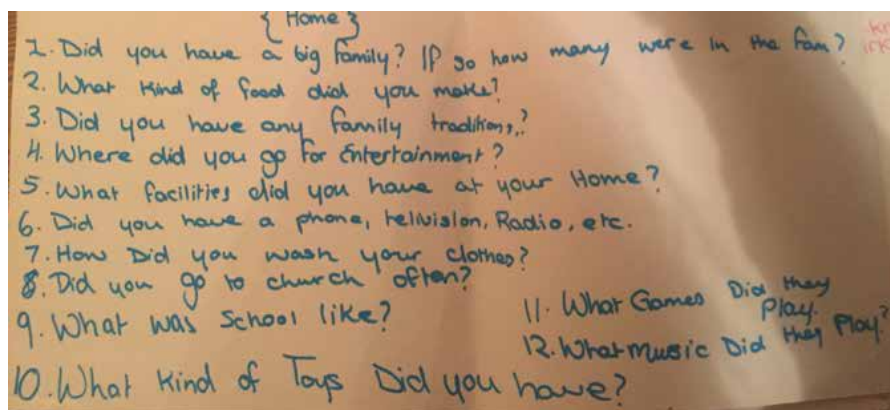 { Home }
1. Did you have a big family? If so how many were in the fam?
2. What kind of food did you make?
3. Did you have any family traditions,?
4. Where did you go for Entertainment?
5. What facilities did you have at your Home?
6. Did you have a phone, telivision, Radio, etc.
7. How Did you wash your clothes?
8. Did you go to church often?
9. What was School like?
10. What Kind of Toys Did you have?
11. What Games Did they
Play.
12. What Music Did they Play?